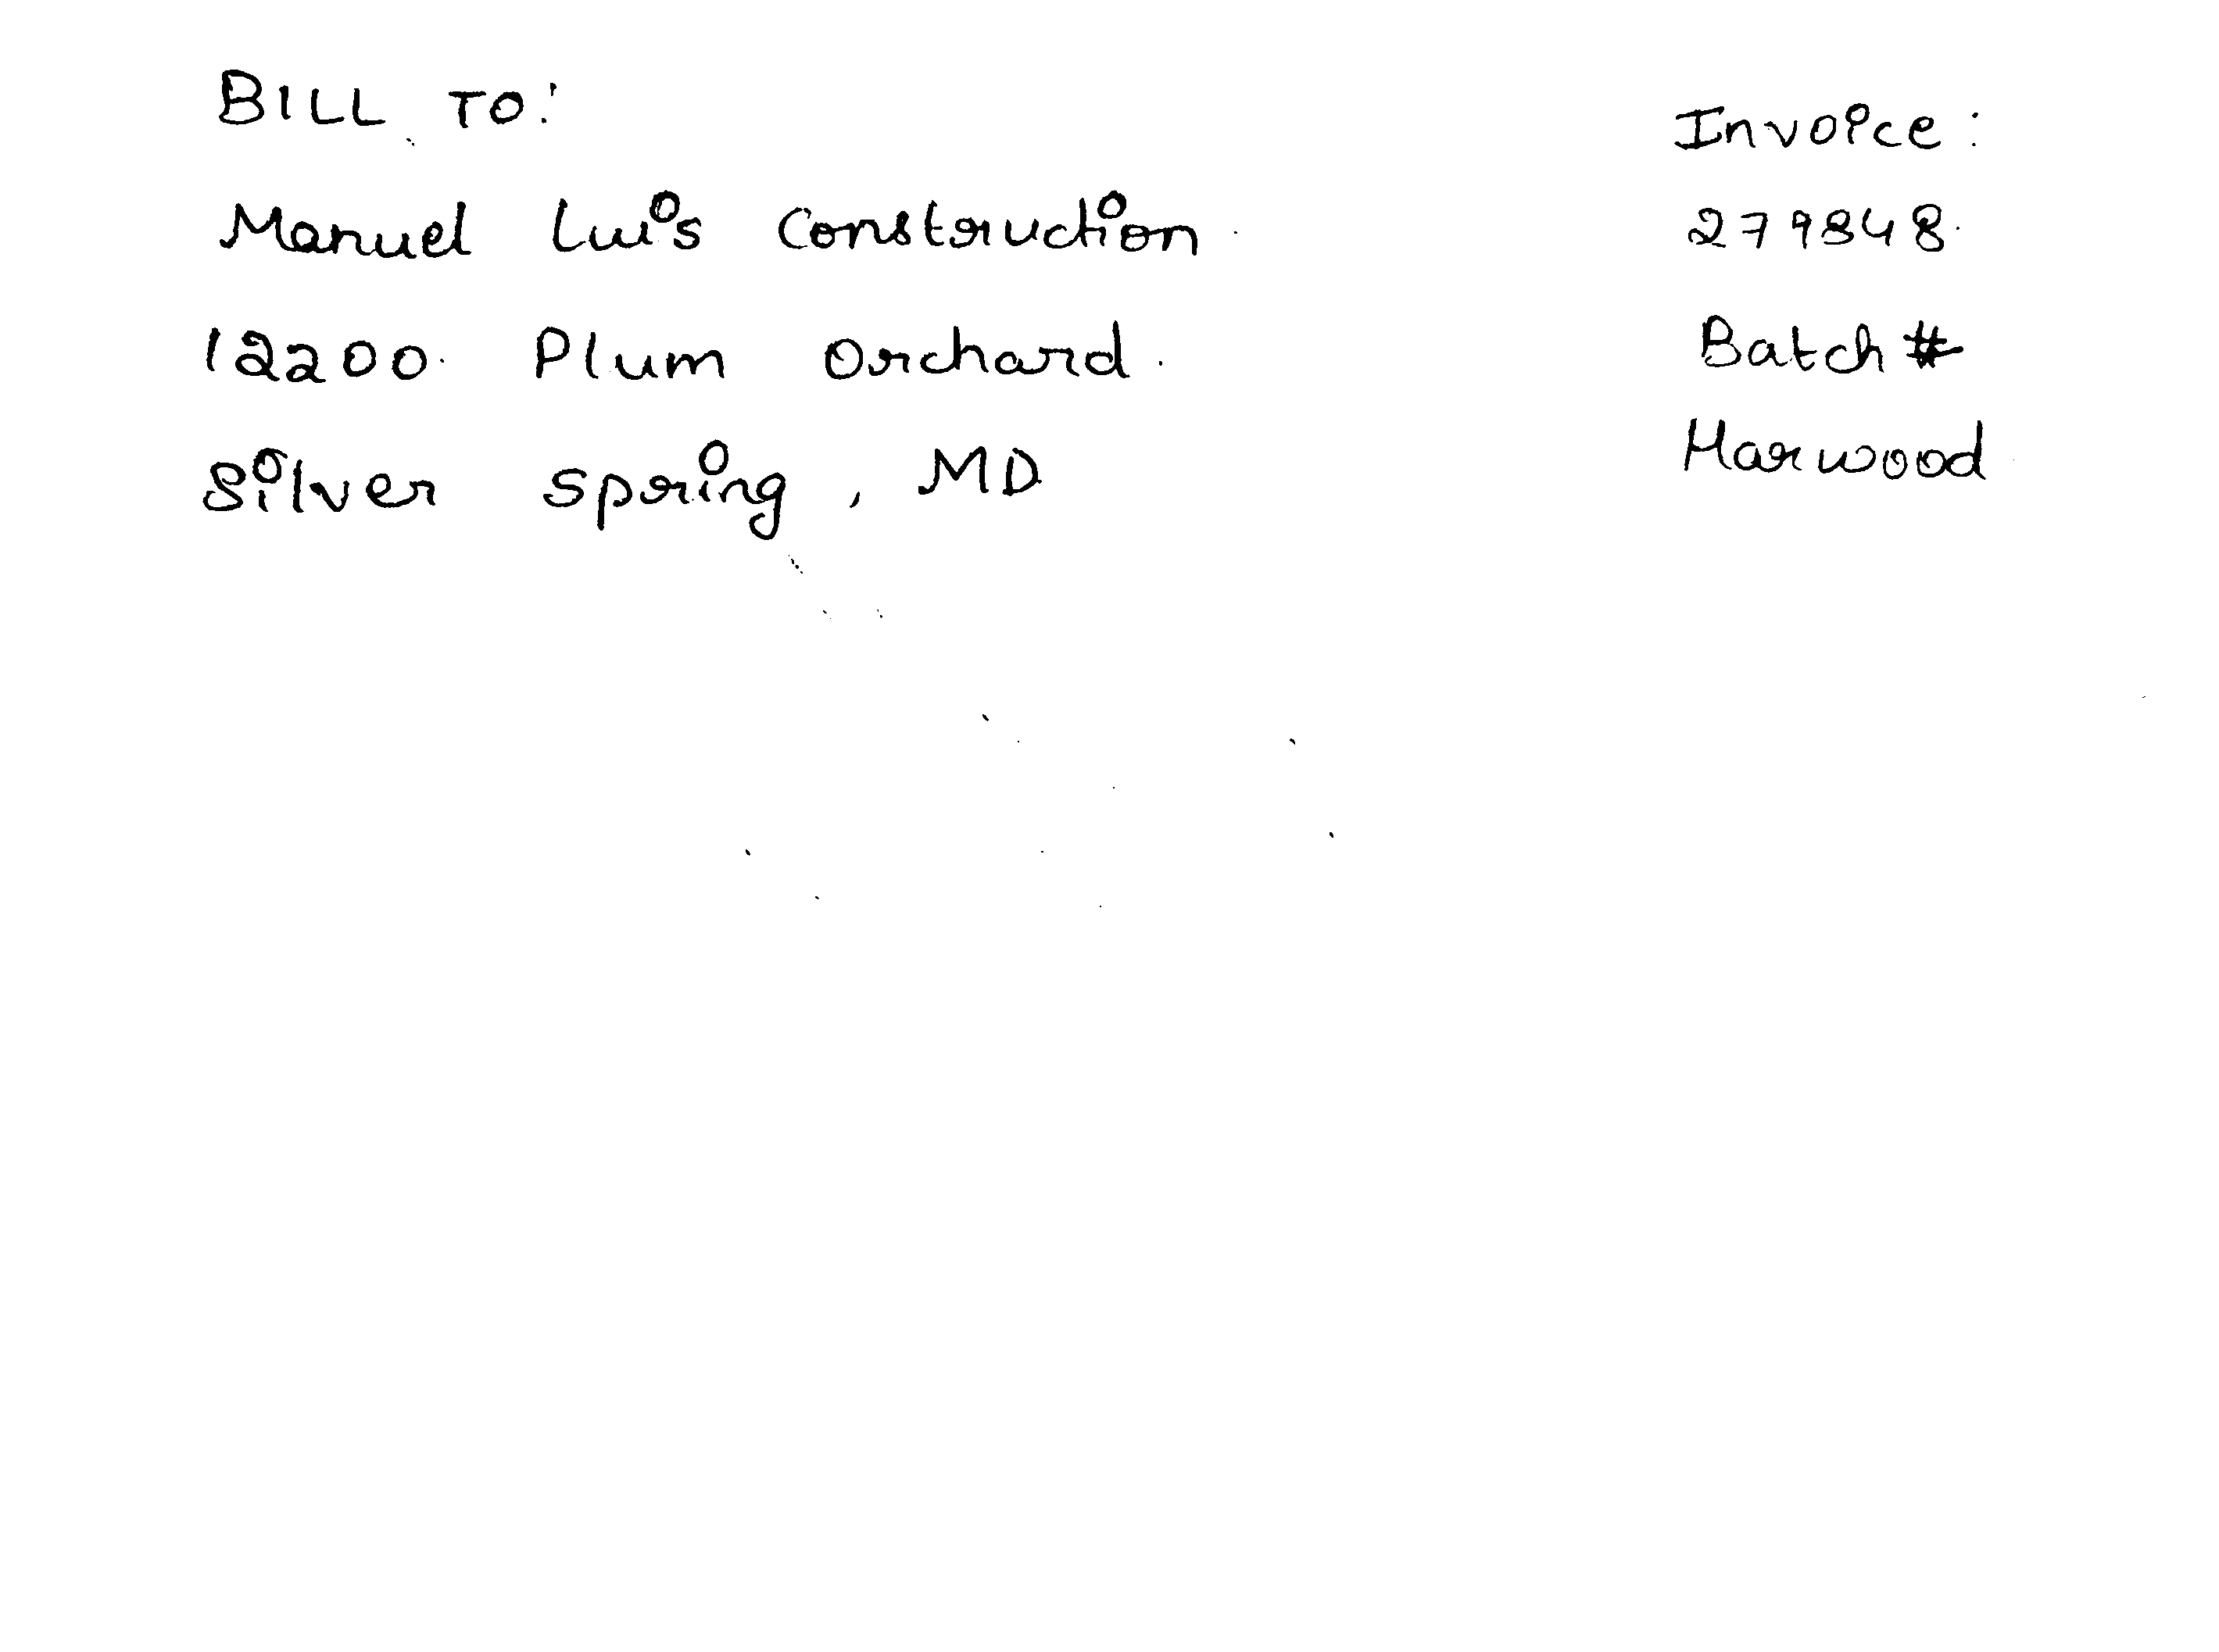 BILL TO:
Manuel Luis Construction
12200 Plum Orchard.
Silver spring, MD
Invoice:
279848
Batch #
Marwood